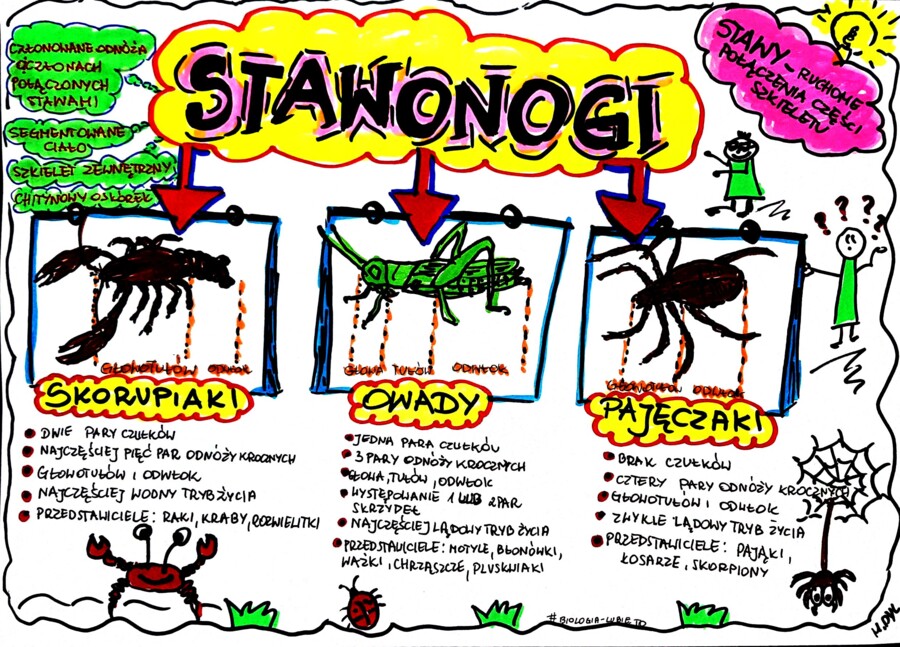 CZŁONOWANE ODNÓŻA
O CZŁONACH
POŁĄCZONYCH
STAWAMI
SEGMENTOWANE
CIAŁO
SZKIELET ZEWNĘTRZNY
CHITYNOWY OSKÓREK
STAWONOGI
STAWY - RUCHOME
POŁĄCZENIA CZĘŚCI
SZKIELETU
? ? ?
GŁOWOTUŁÓW ODWŁOK
SKORUPIAKI
DWIE PARY CZUŁKÓW
NAJCZĘŚCIEJ PIĘĆ PAR ODNÓŻY KROCZNYCH
GŁOWOTUŁÓW I ODWŁOK
NAJCZĘŚCIEJ WODNY TRYB ŻYCIA
PRZEDSTAWICIELE: RAKI, KRABY, ROZWIELITKI
GŁOWA TUŁÓW ODWŁOK
OWADY
JEDNA PARA CZUŁKÓW
3 PARY ODNÓŻY KROCZNYCH
GŁOWA, TUŁÓW, ODWŁOK
WYSTĘPOWANIE 1 LUB 2 PAR
SKRZYDEŁ
NAJCZĘŚCIEJ LĄDOWY TRYB ŻYCIA
PRZEDSTAWICIELE: MOTYLE, BŁONKÓWKI,
WAŻKI, CHRZĄSZCZE, PLUSKWIAKI
GŁOWOTUŁÓW ODWŁOK
PAJĘCZAKI
BRAK CZUŁKÓW
CZTERY PARY ODNÓŻY KROCZNYCH
GŁOWOTUŁÓW I ODWŁOK
ZWYKLE LĄDOWY TRYB ŻYCIA
PRZEDSTAWICIELE: PAJĄKI,
KOSARZE, SKORPIONY
#BIOLOGIA-LUBIĘ TO